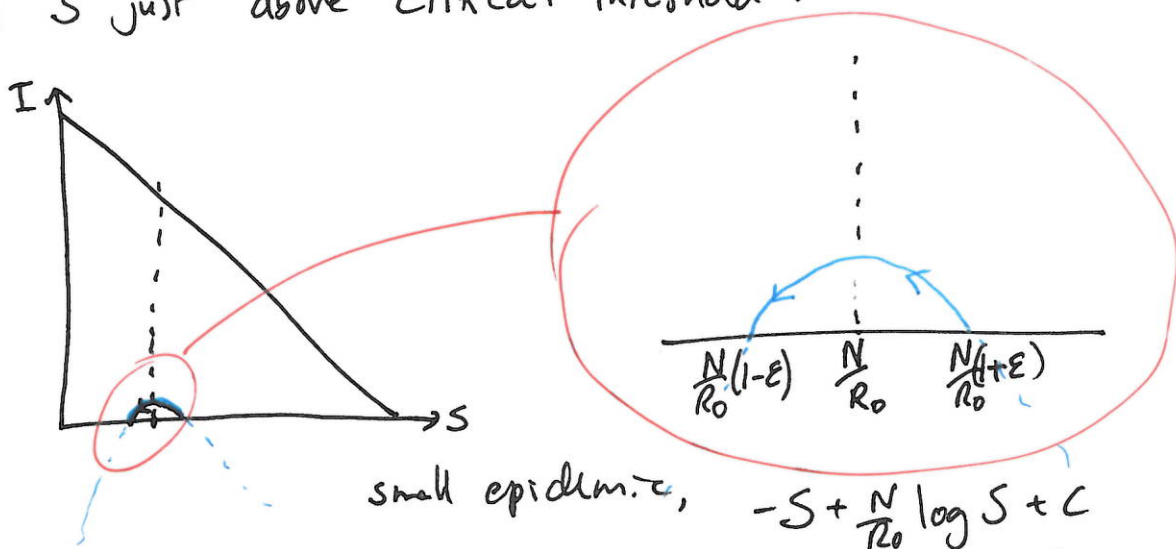 S just above critical threshold.
I
S
N/R₀(1-ε) N/R₀ N/R₀(1+ε)
small epidemic, -S + N/R₀ log S + C